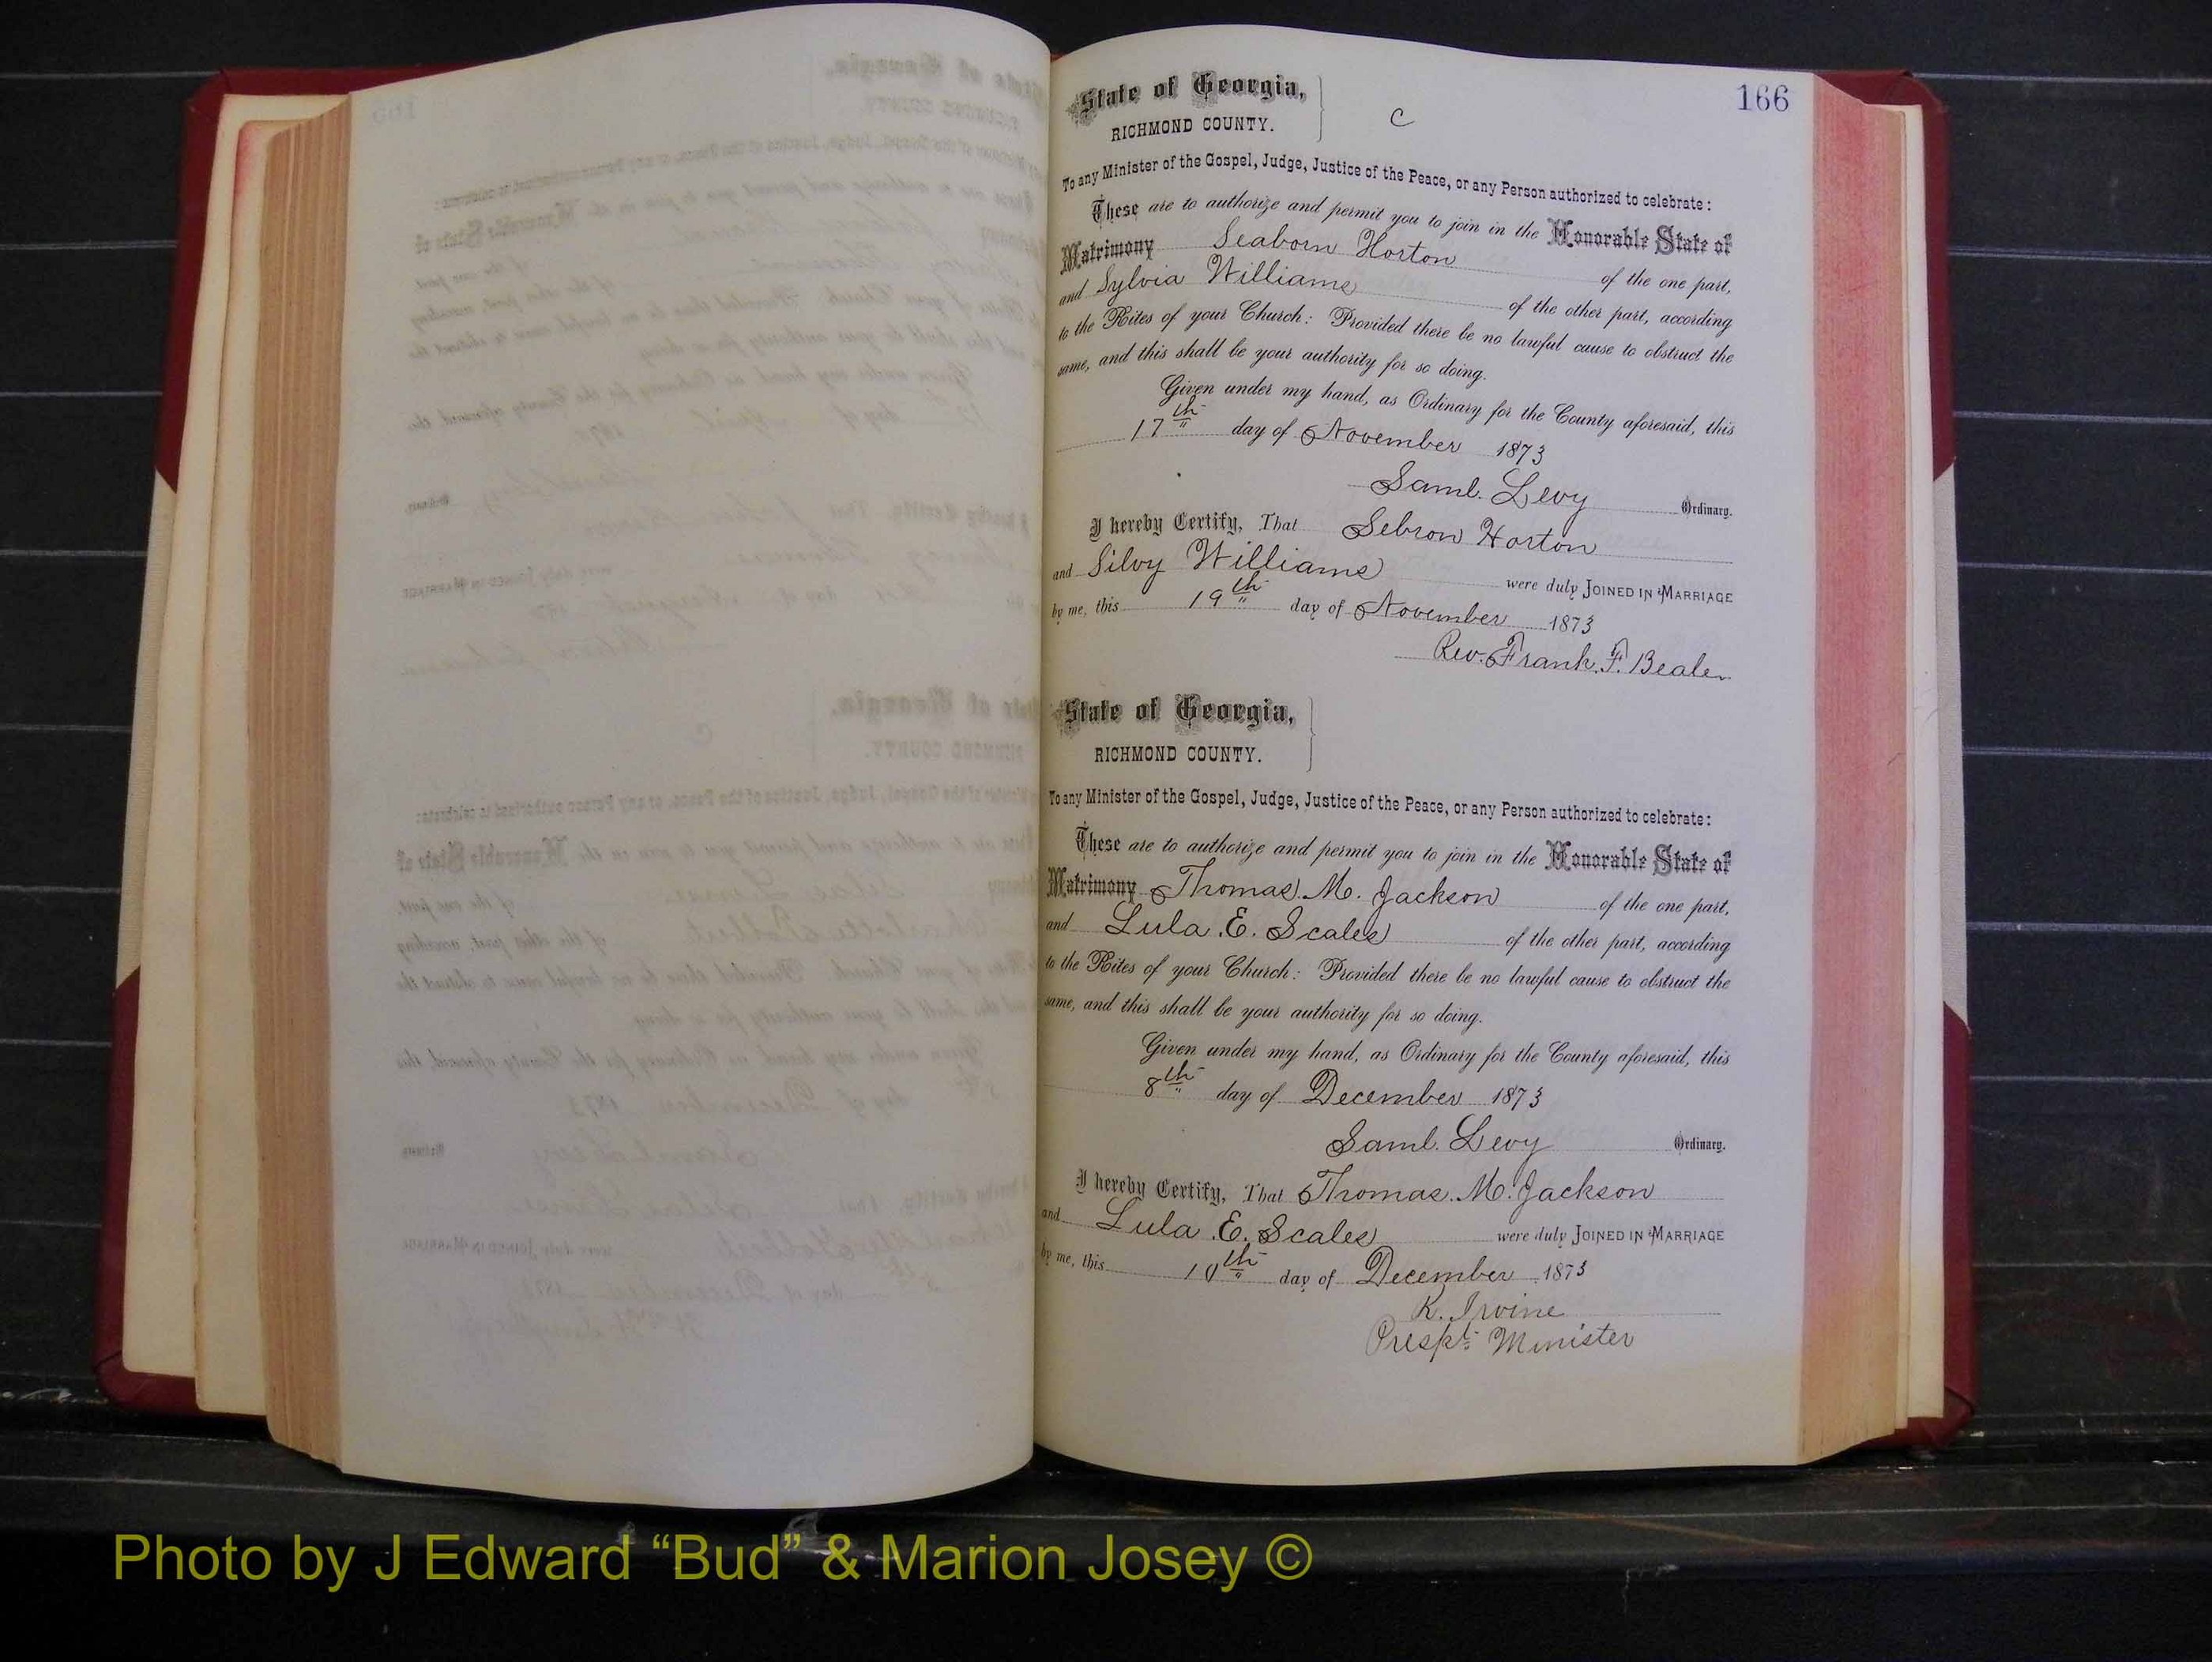 166
State of Georgia,
RICHMOND COUNTY.
C
To any Minister of the Gospel, Judge, Justice of the Peace, or any Person authorized to celebrate:
These are to authorize and permit you to join in the Honorable State of
Matrimony Seaborn Horton of the one part,
and Sylvia Williams of the other part, according
to the Rites of your Church: Provided there be no lawful cause to obstruct the
same, and this shall be your authority for so doing.
Given under my hand, as Ordinary for the County aforesaid, this
17th day of November 1873
Saml. Levy Ordinary.
I hereby Certify, That Sebron Horton
and Silvy Williams were duly JOINED IN MARRIAGE
by me, this 19th day of November 1873
Rev. Frank. F. Beale
State of Georgia,
RICHMOND COUNTY.
To any Minister of the Gospel, Judge, Justice of the Peace, or any Person authorized to celebrate:
These are to authorize and permit you to join in the Honorable State of
Matrimony Thomas. M. Jackson of the one part,
and Lula. E. Scales of the other part, according
to the Rites of your Church: Provided there be no lawful cause to obstruct the
same, and this shall be your authority for so doing.
Given under my hand, as Ordinary for the County aforesaid, this
8th day of December 1873
Saml. Levy Ordinary.
I hereby Certify, That Thomas. M. Jackson
and Lula. E. Scales were duly JOINED IN MARRIAGE
by me, this 10th day of December 1873
R. Irvine
Presbt. Minister
Photo by J Edward “Bud” & Marion Josey ©